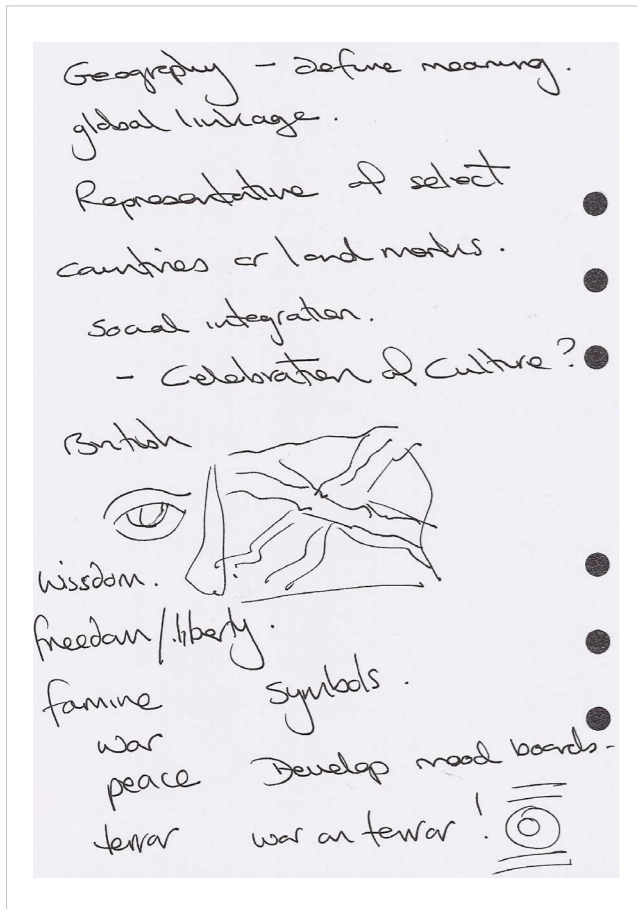 Geography - define meaning.
global linkage.
Representative of select
countries or land marks.
Social integration.
- Celebration of Culture?
British
wissdom.
freedom/liberty.
famine
symbols.
war
peace
Develop mood boards-
terror
war on terror!